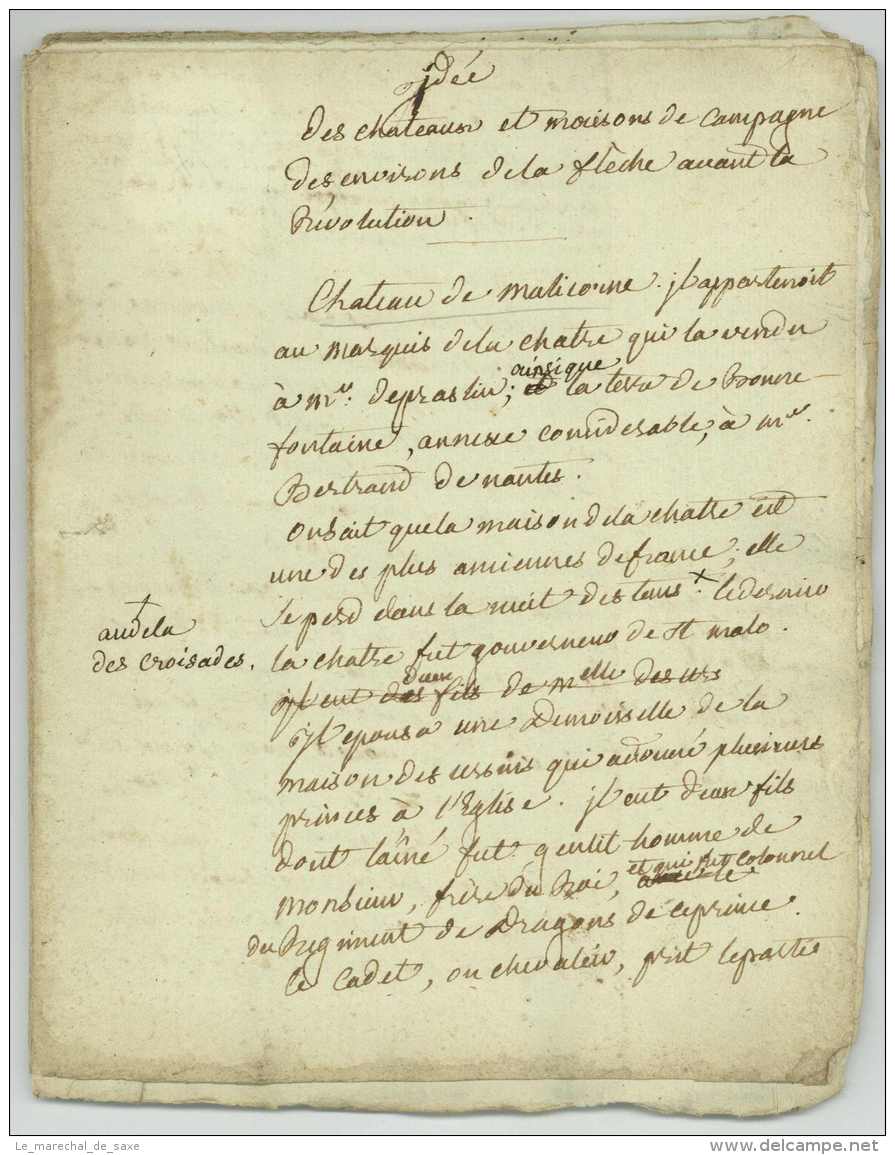 jdée
des chateaux et maisons de campagne
des environs de la flèche avant la
Révolution.
Chateau de malicorne. jl appartenoit
au marquis de la chatre qui la vendu
ainsi que
à mr. depraslin; et la terre de Bonne
fontaine, annexe considerable, à mr.
Bertrand de nantes.
on sait que la maison de la chatre est
une des plus anciennes de france; elle
se perd dans la nuit des tems. x le dernier
au dela
des croisades.
la chatre fut gouverneur de St malo.
deux
jl eut des fils de melle des urs
jl epousa une Demoiselle de la
maison des ursins qui a donné plusieurs
princes à l'Eglise. jl eut deux fils
dont l'aîné fut gentil homme de
et qui fut colonnel
Monsieur, frère du Roi,
du Regiment de Dragons de ce prince.
Le cadet, ou chevalier, prit le parti
Le_marechal_de_saxe
www.delcampe.net